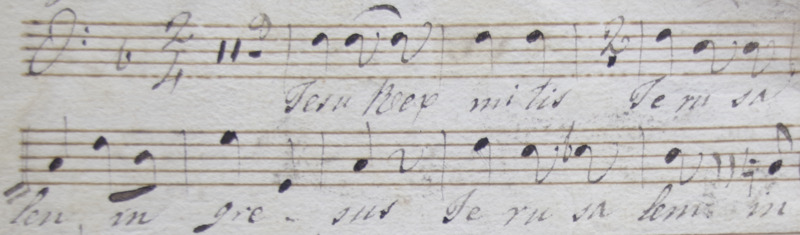 Jesu Rex mitis Je ru sa
len, in gre - sus Je ru sa lem in